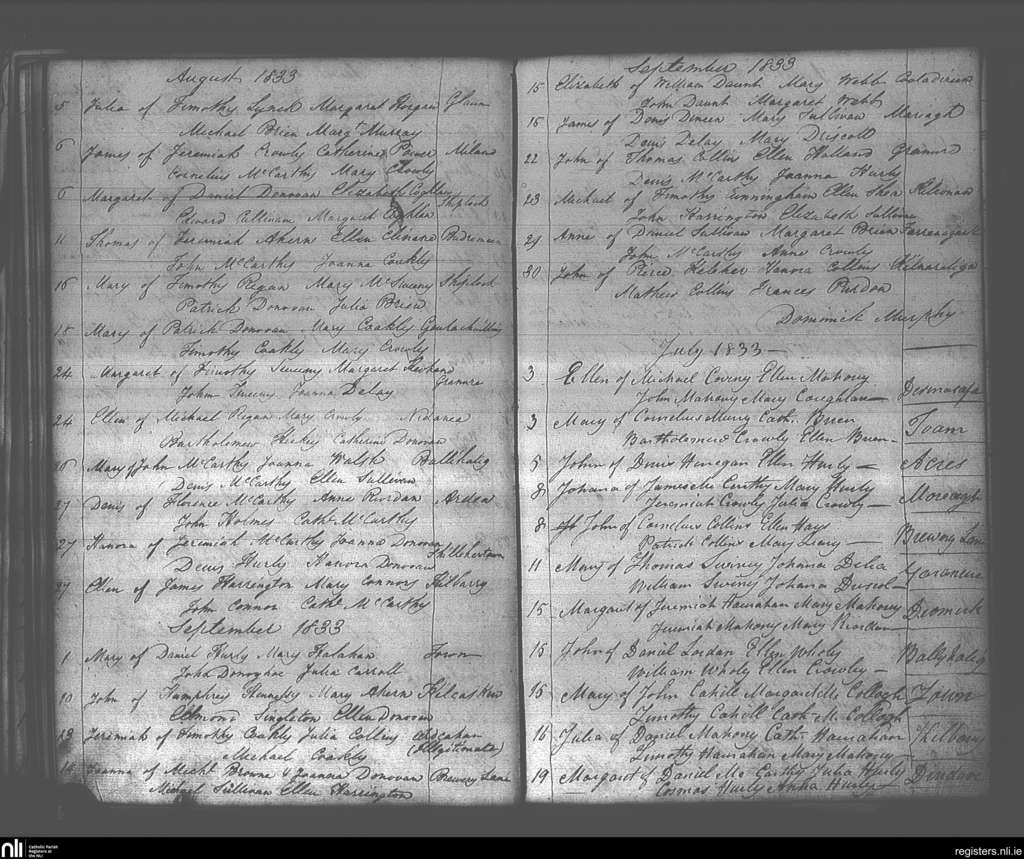 August 1833
5 Julia of Timothy Lynch Margaret Horgan Glaun
Michael Brien Margt Murray
6 James of Jeremiah Crowly Catherine Power Milane
Cornelius McCarthy Mary Crowly
6 Margaret of Daniel Donovan Elizabeth Coghlan Shiplock
Edward Cullinan Margaret Coghlan
11 Thomas of Jeremiah Aherne Ellen
John McCarthy Joanna Coakly
16 Mary of Timothy Regan Mary McSweeny Shiplock
Patrick Donovan Julia Brien
18 Mary of Patrick Donovan Mary Coakly
Timothy Coakly Mary Crowly
24 Margaret of Timothy Sweeny Margaret Granure
John Sweeny Joanna Delay
24 Ellen of Michael Regan Mary Crowly Nedanea
Bartholomew Hickey Catherine Donovan
26 Mary of John McCarthy Joanna Walsh Ballihalig
Denis McCarthy Ellen Sullivan
27 Denis of Florence McCarthy Anne Riordan Ardea
John Holmes Cathe McCarthy
27 Hanora of Jeremiah McCarthy Joanna Donovan Phillibertown
Denis Hurly Hanora Donovan
27 Ellen of James Harrington Mary Connors Kilbarry
John Connor Cathe McCarthy
September 1833
1 Mary of Daniel Hurly Mary Halahan Town
John Donoghoe Julia Carroll
10 John of Humphrei Hennessy Mary Aherne Kilcaskan
Edmond Singleton Ellen Donovan
13 Jeremiah of Timothy Coakly Julia Collins Ardcahan
Michael Coakly (Illegitimate)
14 Joanna of Michl Browne & Joanna Donovan Brewery Lane
Michael Sullivan Ellen Harrington
September 1833
15 Elizabeth of William Daunt Mary Webb
John Daunt Margaret Webb
15 James of Denis Dineen Mary Sullivan Moreagh
Denis Delay Mary Driscoll
22 John of Thomas Collins Ellen Holland Granure
Denis McCarthy Joanna Hurly
23 Michael of Timothy Cunningham Ellen Shea Kilronan
John Harrington Elizabeth Sullivan
29 Anne of Daniel Sullivan Margaret Brien
John McCarthy Anne Crowly
30 John of Pierce Keleher Hanora Collins
Mathew Collins Frances Purdon
Dominick Murphy
July 1833
3 Ellen of Michael Coveny Ellen Mahony
John Mahony Mary Coughlan
3 Mary of Cornelius Murry Cath. Brien Toam
Bartholomew Crowly Ellen Brien
5 John of Denis Henegan Ellen Hurly Acres
8 Johana of James McCarthy Mary Hurly Moreaugh
Jeremiah Crowly Julia Crowly
8 John of Cornelius Collins Ellen Hays Brewery Lane
Patrick Collins Mary Leary
11 Mary of Thomas Swiney Johana Delia
William Swiney Johana Driscol
15 Margaret of Jeremiah Hanrahan Mary Mahony
Jeremiah Mahony Mary Riordan
15 John of Daniel Lordan Ellen Wholy Ballyhalig
William Wholy Ellen Crowley
15 Mary of John Cahill Margaret McCollogh Town
Timothy Cahill Cath McCollogh
16 Julia of Daniel Mahony Cath. Hanrahan Kilbarry
Timothy Hanrahan Mary Mahony
19 Margaret of Daniel McCarthy Julia Hurly
Cosmas Hurly Anna Hurly
nli Catholic Parish Registers at the NLI
registers.nli.ie